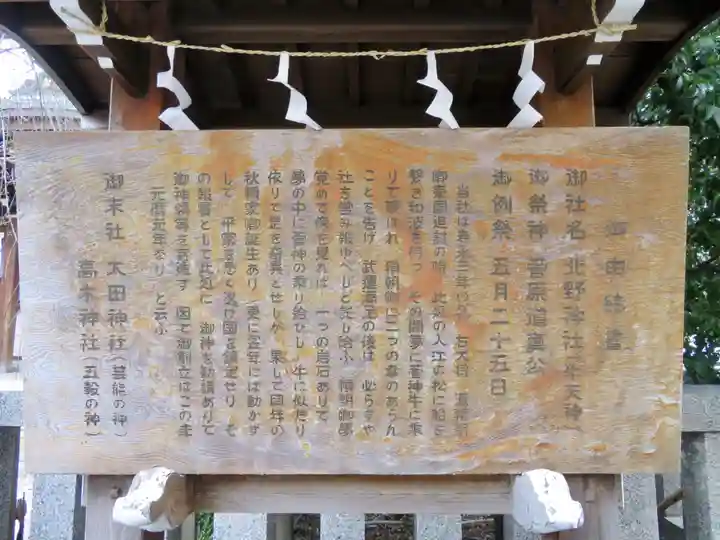 御由緒書
御社名 北野神社(牛天神)
御祭神 菅原道真公
御例祭 五月二十五日
当社は寿永三年
卿東国追討の時 此処の入江の松に船を
繋ぎ和波を待つ その間夢に菅神牛に乗
りて現はれ 頼朝卿に二つの幸のあらん
ことを告げ 武運満足の後は 必らずや
社を営み報ゆべしと示し給ふ 頼朝卿夢
覚めて傍を見れば 一つの岩石ありて
夢の中に菅神の乗り給ひし 牛に似たり
依りて是を奇異とせしが 果して同年の
秋頼家卿誕生あり 更に翌年には動かず
して 平家を悉く退け国を鎮定せり そ
の報賽として此処に 御神を勧請ありて
御神領等を寄進す 因て御創立はこの年
元暦元年なり と云ふ
御末社 太田神社(芸能の神)
高木神社(五穀の神)